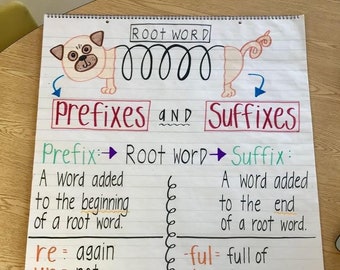 ROOT WORD
PREFIXES AND SUFFIXES
Prefix: ROOT WORD Suffix:
A WORD ADDED
to the beginning
of a root word.
A WORD ADDED
to the end
of a root word.
re = again
ful = full of